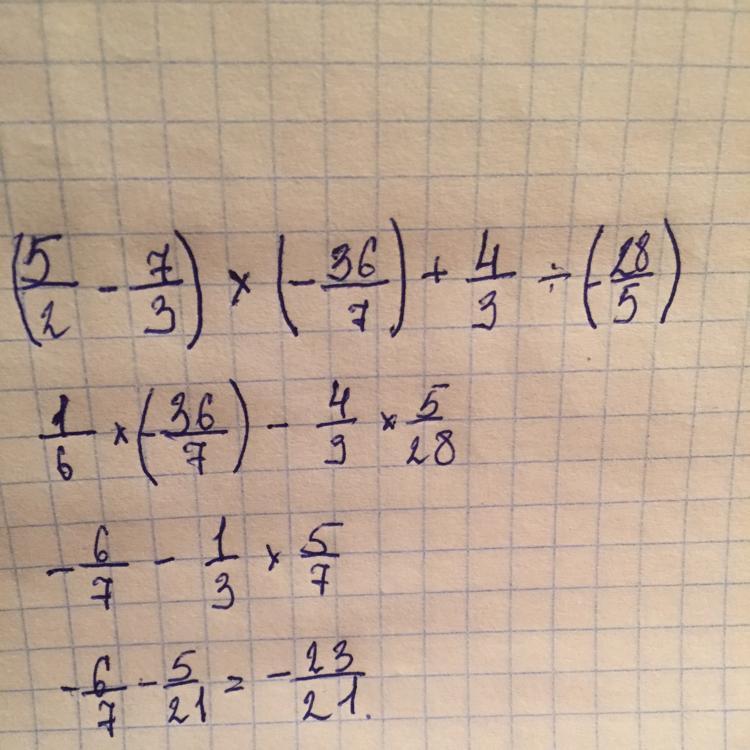 (5/2 - 7/3) × (-36/7) + 4/3 ÷ (-28/5)
1/6 × (-36/7) - 4/3 × 5/28
-6/7 - 1/3 × 5/7
-6/7 - 5/21 = -23/21.